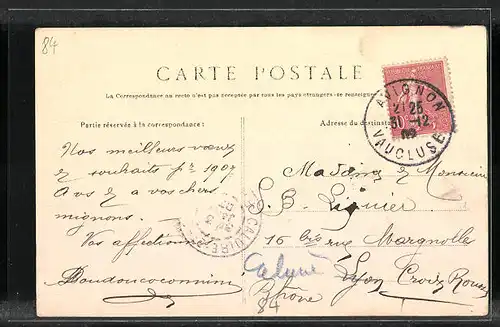 84
CARTE POSTALE
La Correspondance au recto n'est pas acceptée par tous les pays étrangers
Partie réservée à la correspondance:
Adresse du destinataire
AVIGNON
21 25
30 12
VAUCLUSE
Nos meilleurs vœux
& souhaits pr 1907
A vs & a vos chers
mignons.
Vos affectionnés
Madame & Monsieur
S. B. Ligier
16 bis rue Margnolle
Lyon Croix Rousse
Rhône
84
CALUIRE